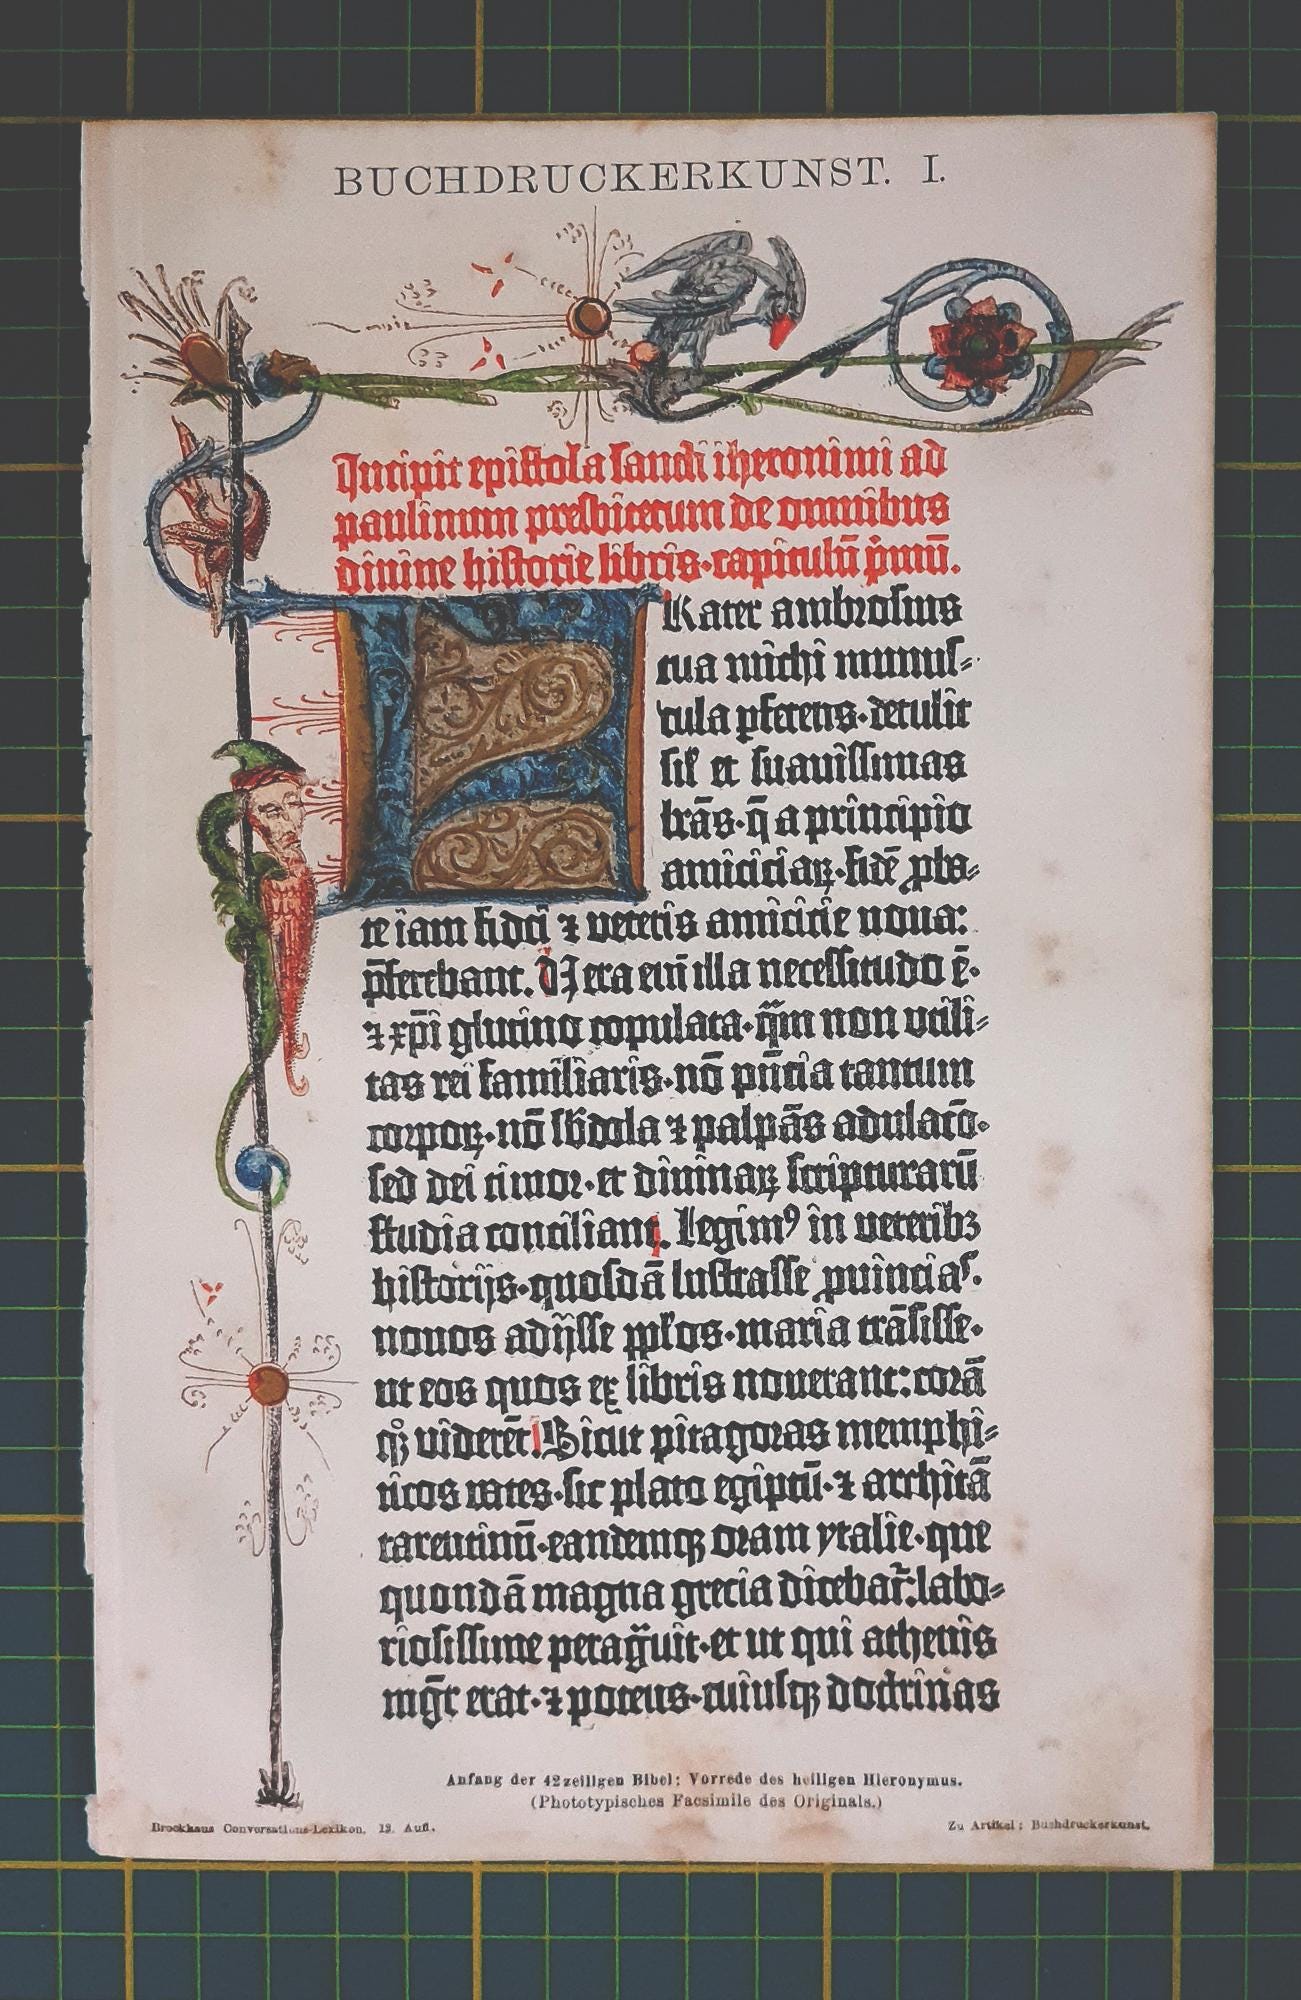 BUCHDRUCKERKUNST. I.
Incipit epistola sancti iheronimi ad
paulinum presbiterum de omnibus
divine historie libris·capitulū p̄mū.
Frater ambrosius
tua michi munus-
cula ꝑferens·detulit
sil̉ et suavissimas
lr̄as·q̄ a principio
amiciciaꝝ·fidē ꝓba-
te iam fidei ⁊ veteris amicicie nova:
p̄ferebant. Vera em̄ illa necessitudo ē·
⁊ xp̄i glutino copulata·q̄m non utili-
tas rei familiaris·nō pn̄cia tantum
corpoꝝ·nō sb̄dola ⁊ palpās adulacō·
sed dei timor·et divinaꝝ scripturarū
studia conciliant. Legimꝰ in veteribꝫ
historijs·quosdā lustrasse ꝓvincias·
novos adijsse ppl̉os·maria trāsisse·
ut eos quos ex libris noverant: corā
qꝫ viderēt. Sicut pitagoras memphi-
ticos vates·sic plato egiptū·⁊ architā
tarentinū·eandemqꝫ oram ytalie·que
quondā magna grecia dicebat̄: labo-
riosissime peragͣvit·et ut qui athenis
mḡr erat·⁊ potens·cuiusqꝫ doctrinas
Anfang der 42zeiligen Bibel: Vorrede des heiligen Hieronymus.
(Phototypisches Facsimile des Originals.)
Brockhaus Conversations-Lexikon. 13. Aufl.
Zu Artikel: Buchdruckerkunst.